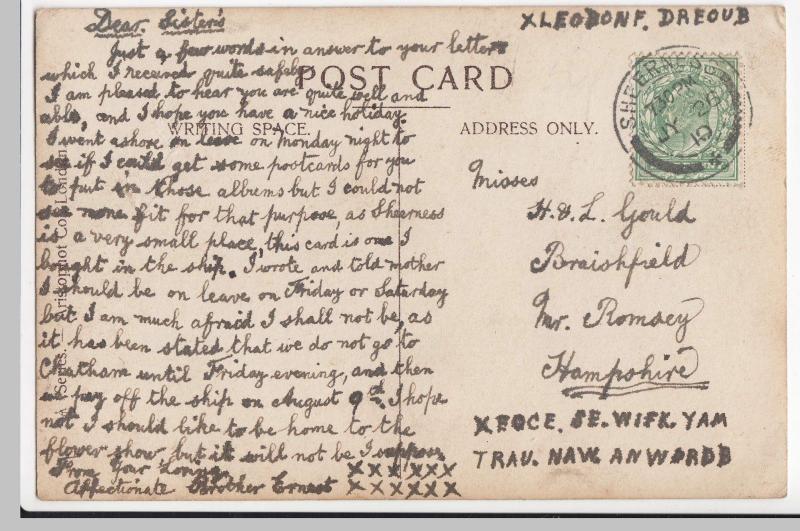 Dear. Sister's
Just a few words in answer to your letters
which I received quite safely
I am pleased to hear you are quite well and
able, and I hope you have a nice holiday.
I went ashore on leave on Monday night to
see if I could get some postcards for you
to put in those albums but I could not
see none fit for that purpose, as Sheerness
is a very small place, this card is one I
bought in the ship. I wrote and told mother
I should be on leave on Friday or Saturday
but I am much afraid I shall not be, as
it has been stated that we do not go to
Chatham until Friday evening, and then
we pay off the ship on August 9th. I hope
not I should like to be home to the
flower show but it will not be I suppose
From Your Loving
Affectionate Brother Ernest
XXXXXX
XXXXXX
POST CARD
WRITING SPACE.
ADDRESS ONLY.
Series. Aristophot Co. London
XLEOBONF. DREOUB
SHEERNESS
7.30 PM
JY 26
10
Misses
H. & L. Gould
Braishfield
Nr. Romsey
Hampshire
XEOCE. SE. WIFK. YAM
TRAU. NAW. ANWORDD